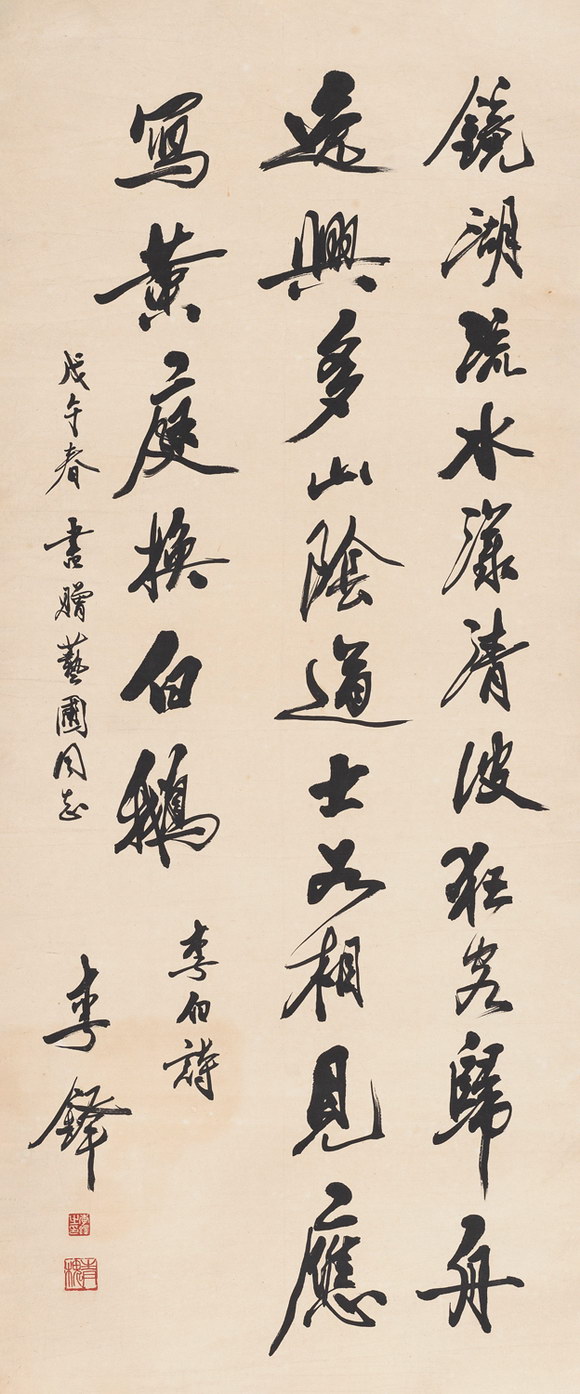 鏡湖流水漾清波狂客歸舟
逸興多山陰道士如相見應
寫黃庭換白鵝
李白詩
戊午春書贈藝圃同志
李鐸